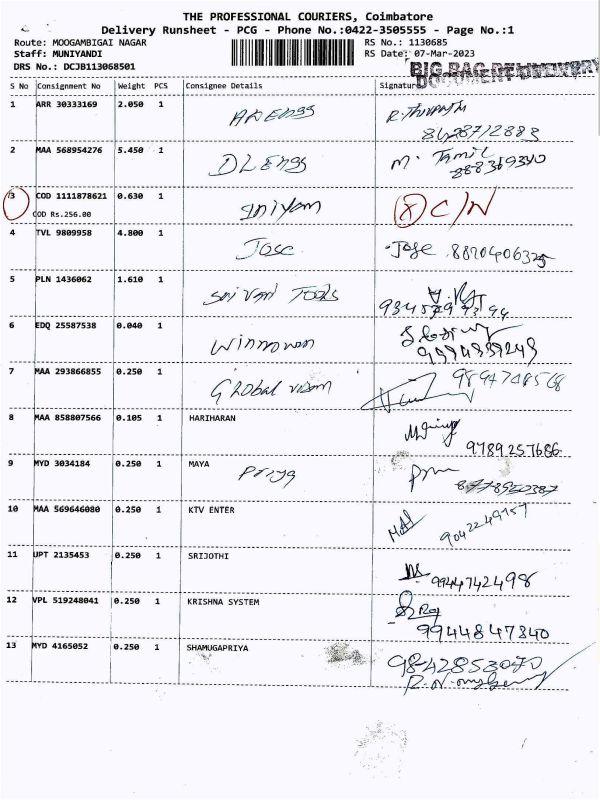 THE PROFESSIONAL COURIERS, Coimbatore
Delivery Runsheet - PCG - Phone No.:0422-3505555 - Page No.:1
Route: MOOGAMBIGAI NAGAR RS No.: 1130685
Staff: MUNIYANDI RS Date: 07-Mar-2023
DRS No.: DCJB113068501 BIG BAG DELIVERY
DOCUMENT
S No Consignment No Weight PCS Consignee Details Signature
1 ARR 30333169 2.050 1
8428712883
2 MAA 568954276 5.450 1 DL Engg M. Tamil
3 COD 1111878621 0.630 1 Sniyam (X) C/N
COD Rs.256.00
4 TVL 9809958 4.800 1 Jose Jose 8870406325
5 PLN 1436062 1.610 1 Sri Vari Tools
6 EDQ 25587538 0.040 1 Winnowon
9994339249
7 MAA 293866855 0.250 1 Global 9894748568
8 MAA 858807566 0.105 1 HARIHARAN
9789257686
9 MYD 3034184 0.250 1 MAYA
Priya 8778950387
10 MAA 569646080 0.250 1 KTV ENTER
9042249157
11 UPT 2135453 0.250 1 SRIJOTHI
9944742498
12 VPL 519248041 0.250 1 KRISHNA SYSTEM
9944847840
13 MYD 4165052 0.250 1 SHAMUGAPRIYA
9842853070